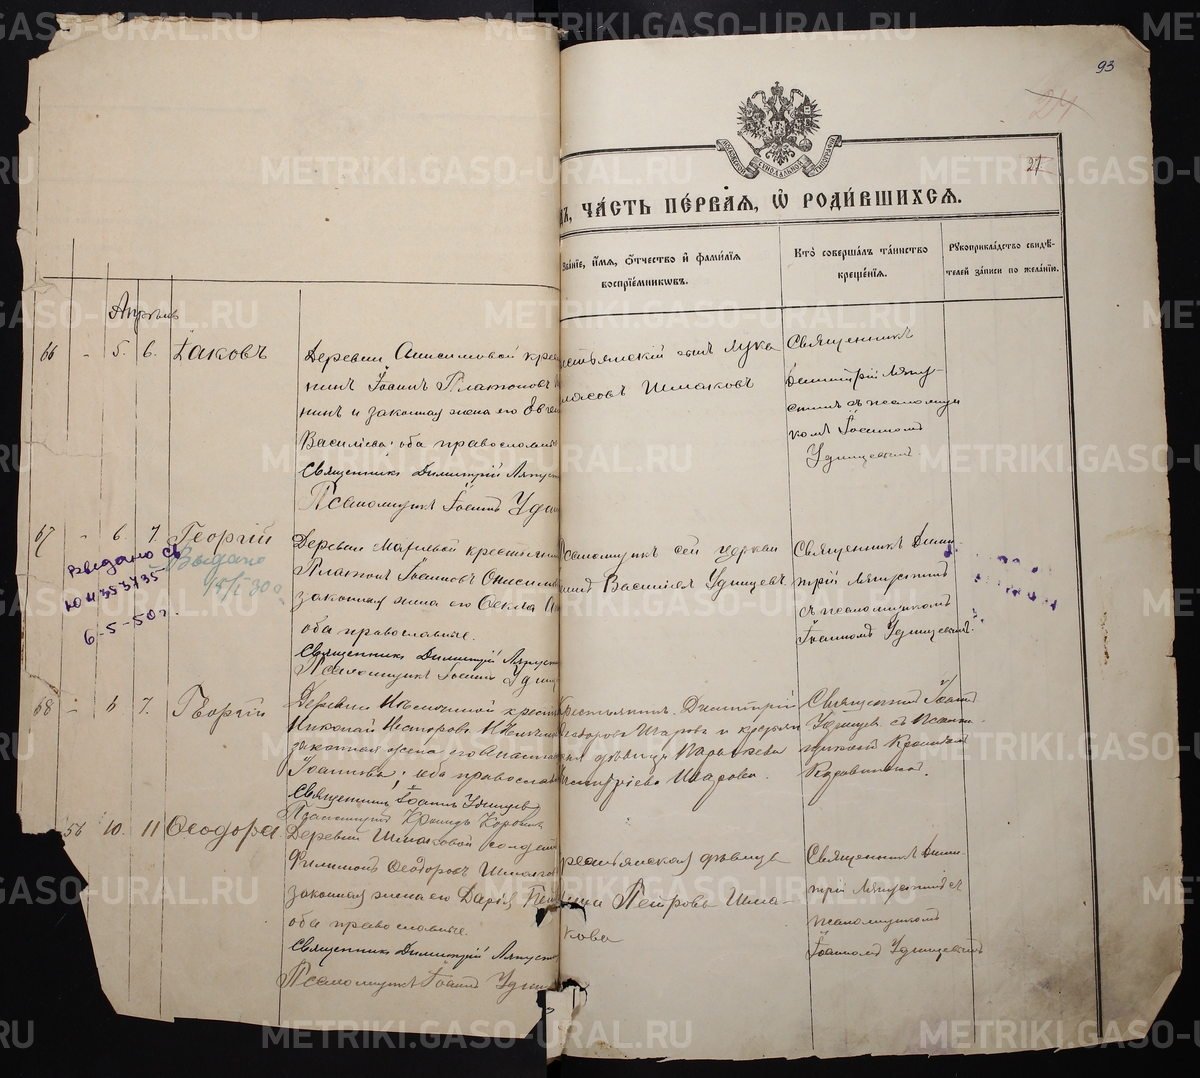 93
24
21
МОСКОВСКОЙ СУНОДАЛЬНОЙ ТИПОГРАФІИ
ЧА́СТЬ ПЕ́РВАЯ, Ѡ РОДИ́ВШИХСЯ.
Зва́ніе, и́мя, ѻ҆́тчество и҆ фами́лїя
воспрїе́мникѡвъ.
Кто̀ соверша́лъ та́инство
креще́нїя.
Рꙋкоприкла́дство свидѣ́-
телей за́писи по жела́нїи.
Апрѣль
66 - 5. 6. Іаковъ
Деревни Анисимовой кре
нинъ Іоаннъ Платоновъ
нинъ и законная жена его Евге
Василіева; оба православные
Священникъ Димитрій Ляпуст
Псаломщикъ Іоаннъ Удин
стьянскій сынъ Лука
Шмаковъ
Священникъ
Димитрій Ляпу-
стинъ съ псаломщи
комъ Іоанномъ
Удинцевымъ.
67 - 6. 7. Георгій
Выдано св
ЮИ 353735
6-5-50 г.
Выдано
Деревни крестьянинъ
Платонъ Іоанновъ Онисим
законная жена его
оба православные.
Священникъ Димитрій Ляпуст
Псаломщикъ Іоаннъ Удинц
Псаломщикъ сей церкви
Василіевъ Удинцевъ
Священникъ Дими-
трій Ляпустинъ
съ псаломщикомъ
Іоанномъ Удинцевымъ.
68 - 6 7. Георгій
Деревни крест
Николай Несторовъ
законная жена его Анаста
Іоаннова; оба православ
Священникъ Іоаннъ Удинцевъ
Псаломщикъ
Крестьянинъ Димитрій
Ѳеодоровъ Шаровъ и крестьян
ская дѣвица Параскева
Димитріева Шарова.
Священникъ Іоаннъ
Удинцевъ съ Псалом-
щикомъ
56 10. 11 Ѳеодора
Деревни Шмаковой солдатъ
Филимонъ Ѳеодоровъ Шмаков
законная жена его Дарія Пет
оба православные.
Священникъ Димитрій Ляпуст
Псаломщикъ Іоаннъ Удинц
рестьянская дѣвица
Петрова Шма-
кова
Священникъ Дими-
трій Ляпустинъ съ
псаломщикомъ
Іоанномъ Удинцевымъ
METRIKI.GASO-URAL.RU